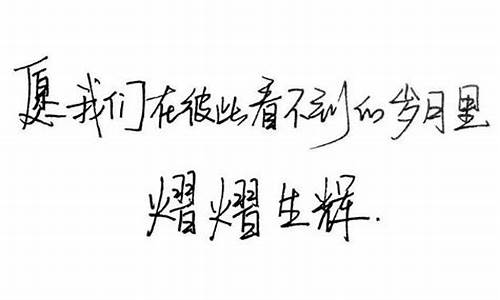 愿我们在彼此看不到的岁月里
熠熠生辉.